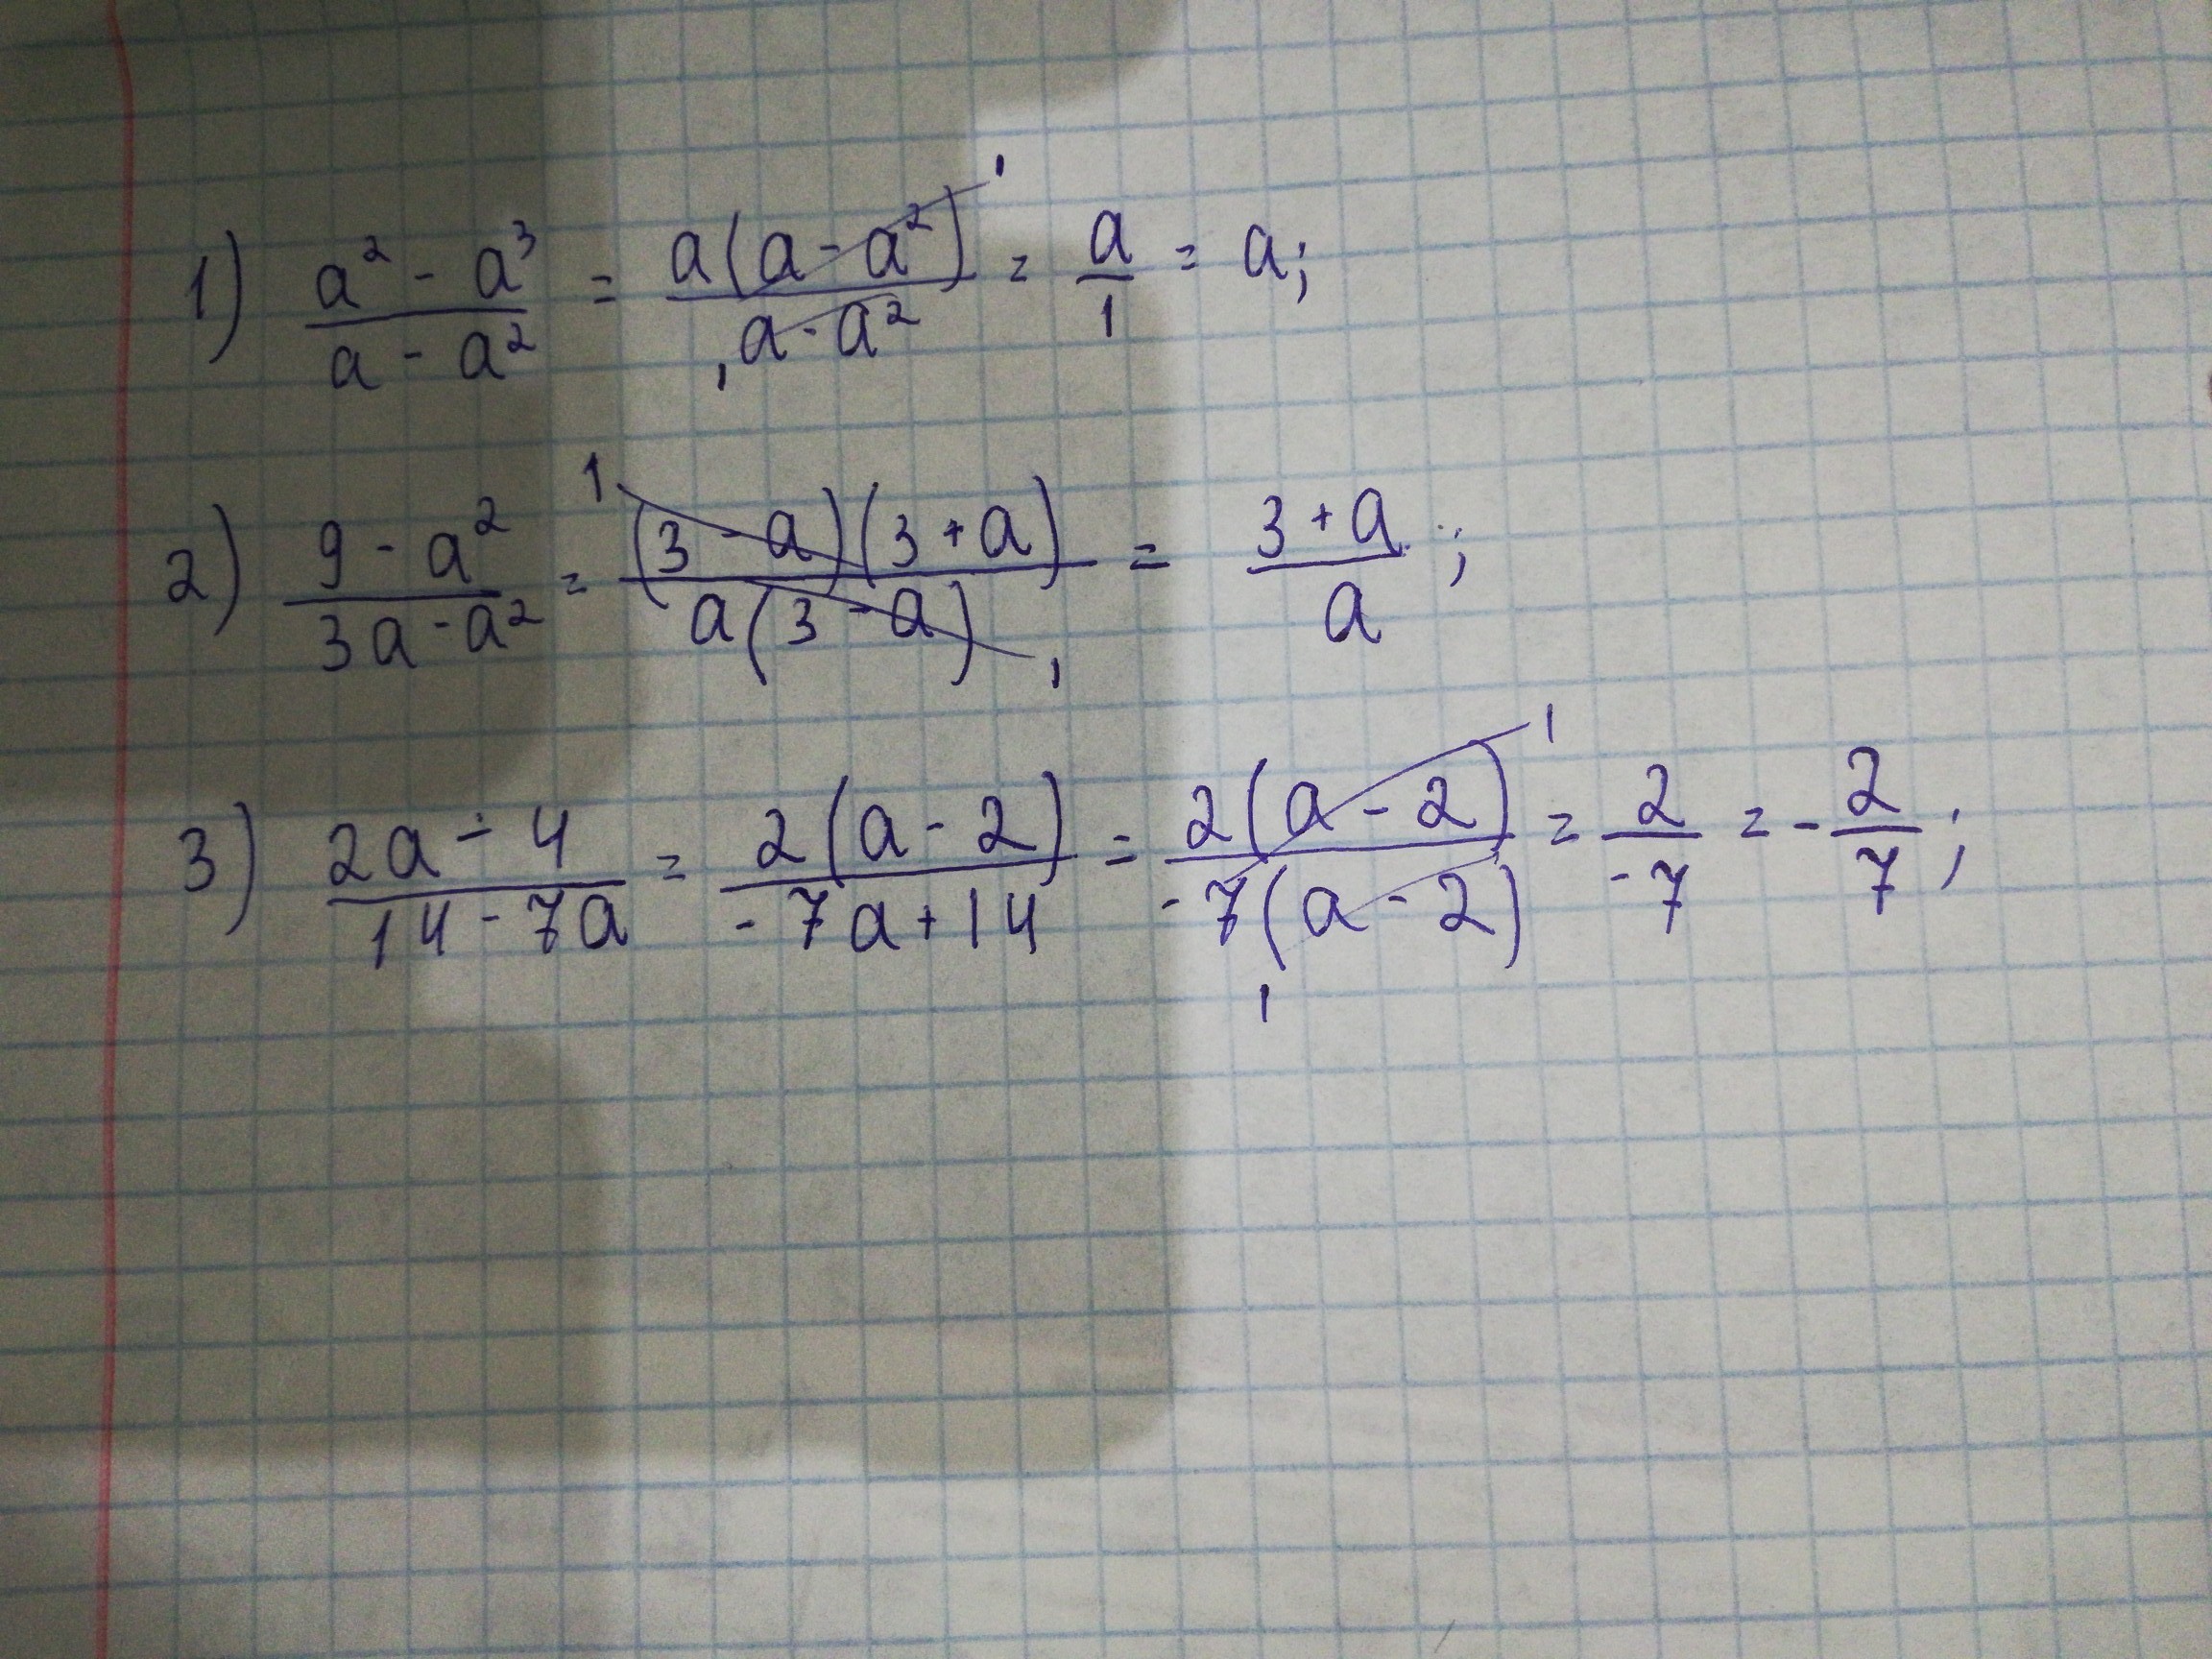 1) (a² - a³)/(a - a²) = a(a - a²)/(a - a²) = a/1 = a;
2) (9 - a²)/(3a - a²) = (3 - a)(3 + a)/(a(3 - a)) = (3 + a)/a;
3) (2a - 4)/(14 - 7a) = 2(a - 2)/(-7a + 14) = 2(a - 2)/(-7(a - 2)) = 2/(-7) = -2/7;